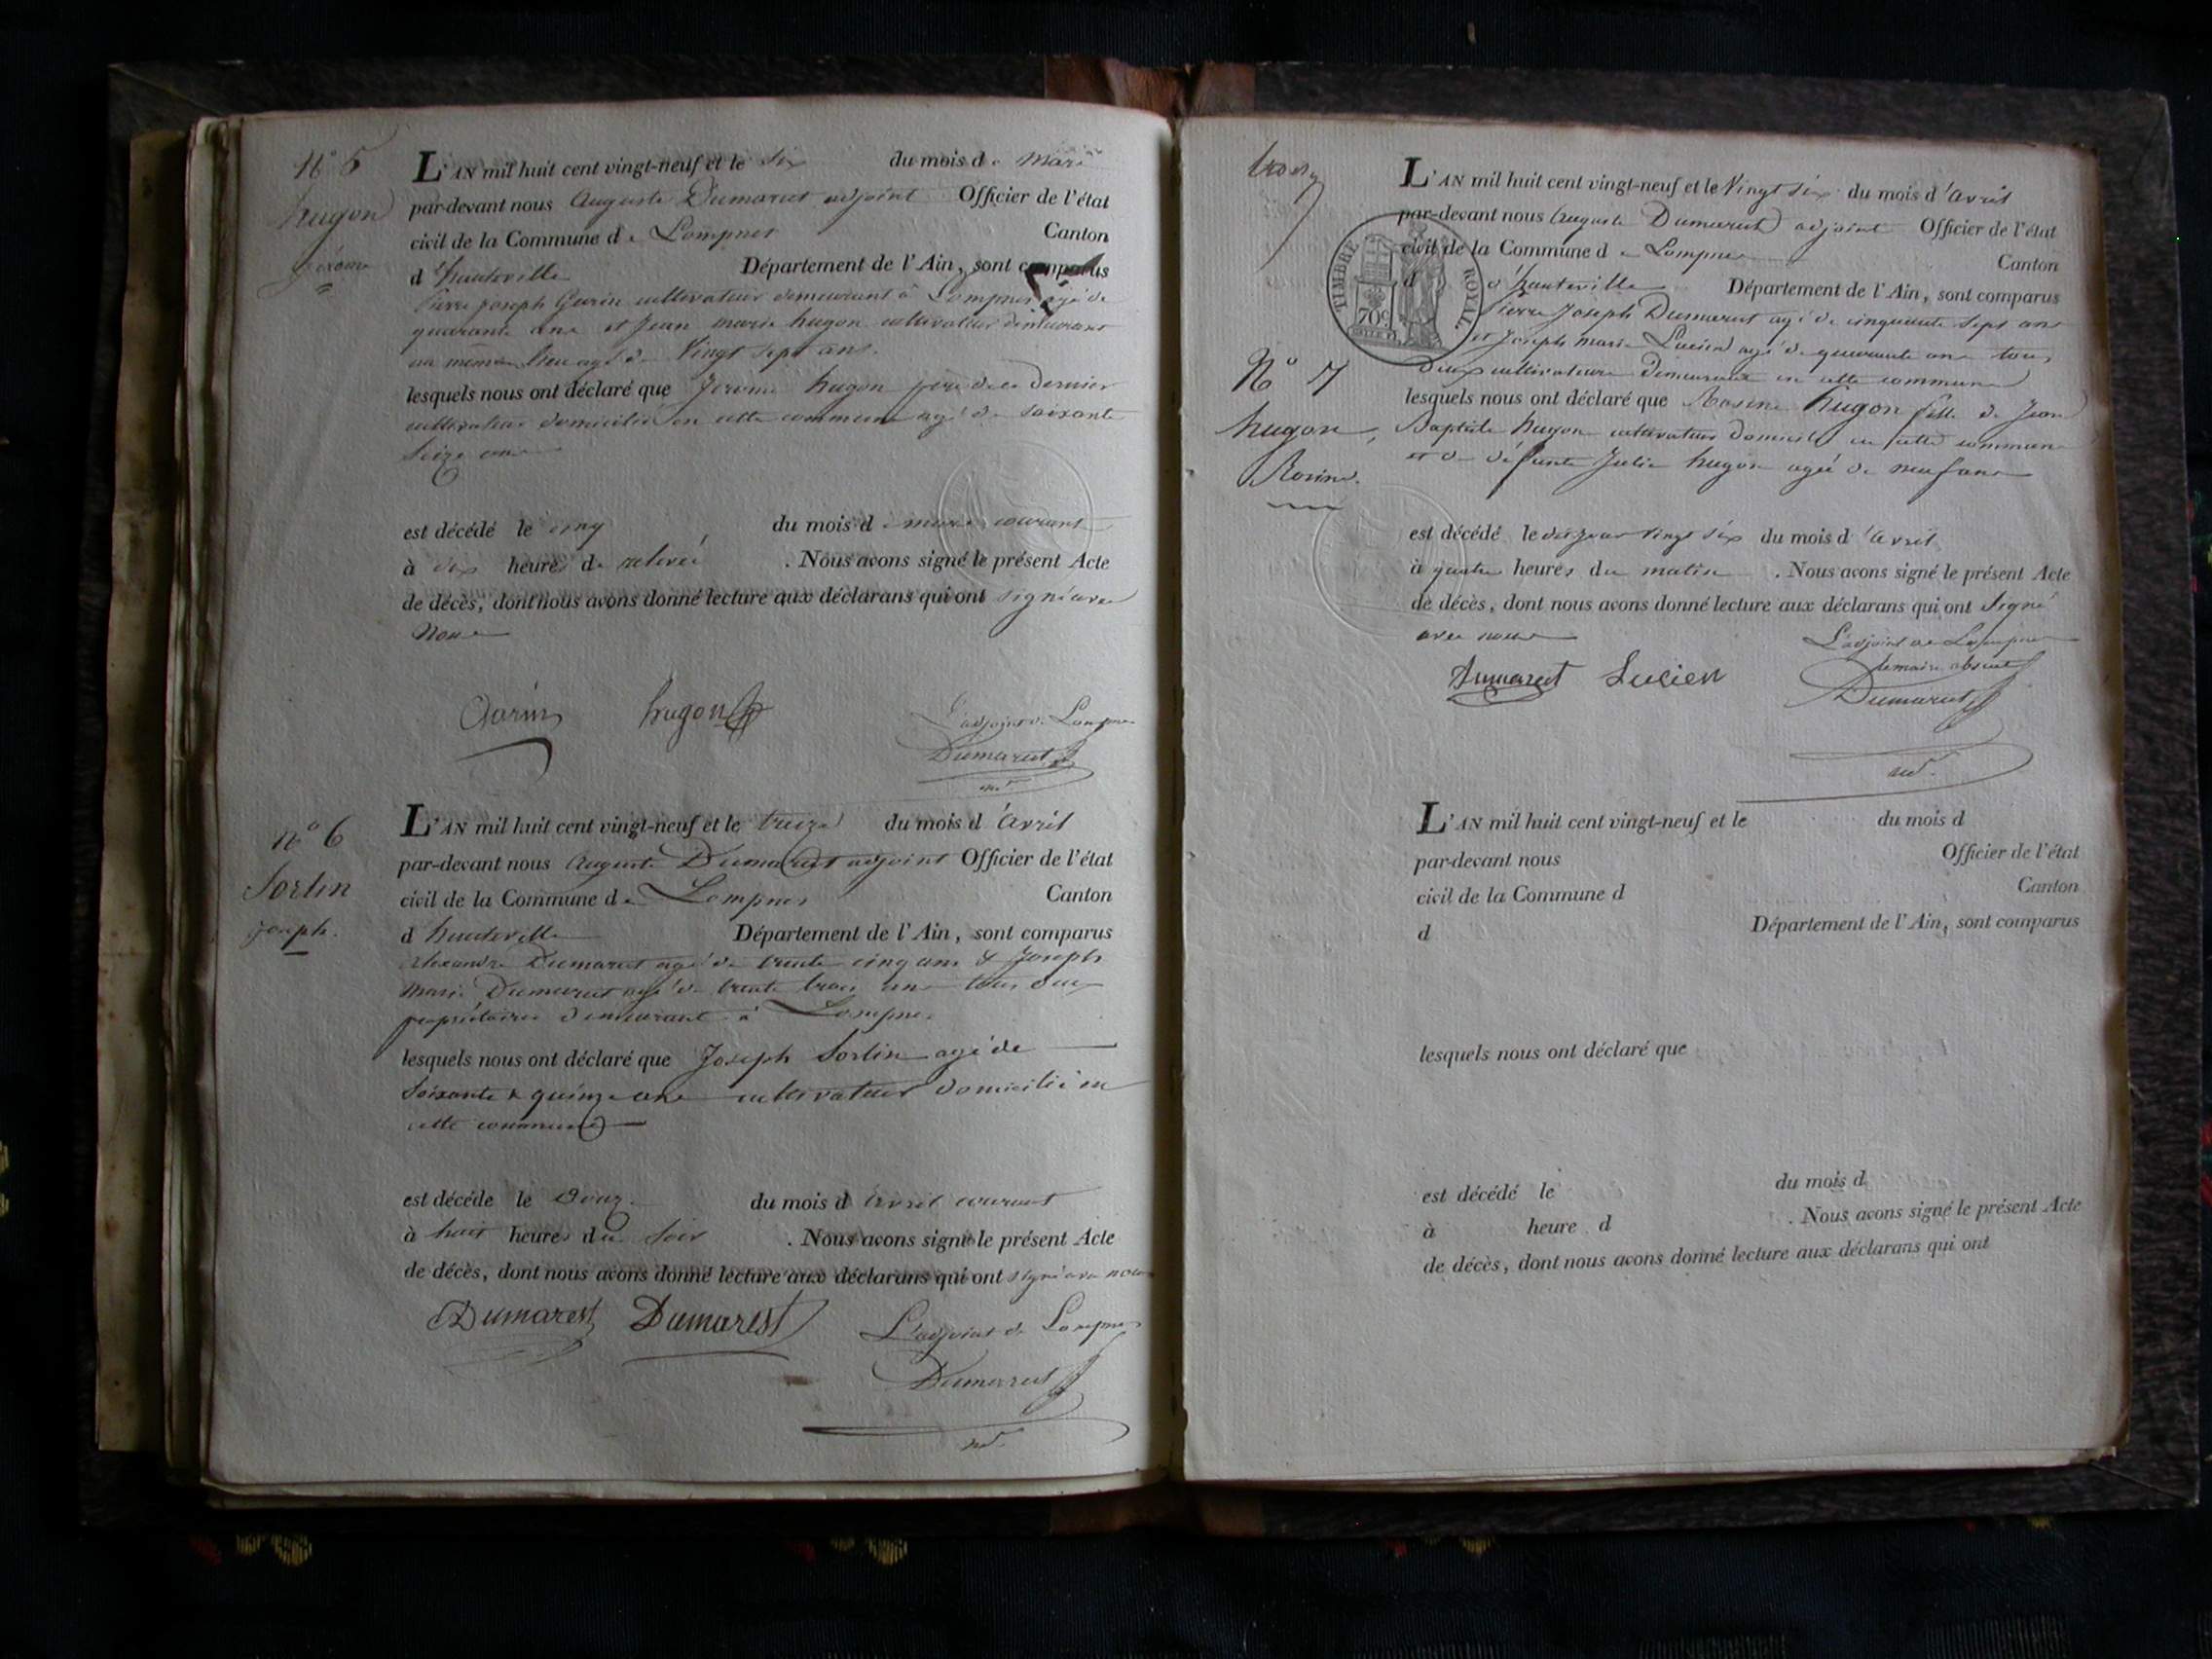 N° 5
hugon
jérome
L'AN mil huit cent vingt-neuf et le Six du mois de Mars
par-devant nous Auguste Dumarest adjoint Officier de l'état
civil de la Commune de Lompnes Canton
d'hauteville Département de l'Ain, sont comparus
Pierre joseph Garin cultivateur demeurant à Lompnes agé de
quarante ans et Jean marie hugon cultivateur demeurant
au même lieu agé de Vingt sept ans.
lesquels nous ont déclaré que Jerome hugon père de ce dernier
cultivateur domicilié en cette commune agé de Soixante
Seize ans
est décédé le cinq du mois de mars courant
à dix heures de relevée. Nous avons signé le présent Acte
de décès, dont nous avons donné lecture aux déclarans qui ont signé avec
Nous
Garin hugon L'adjoint de Lompnes
Dumarest
N° 6
Sorlin
joseph.
L'AN mil huit cent vingt-neuf et le treize du mois d'avril
par-devant nous Auguste Dumarest adjoint Officier de l'état
civil de la Commune de Lompnes Canton
d hauteville Département de l'Ain, sont comparus
Alexandre Dumarest agé de trente cinq ans & Joseph
Marie Dumarest agé de trente trois ans tous deux
propriétaires demeurant à Lompnes
lesquels nous ont déclaré que Joseph Sorlin agé de
Soixante & quinze ans cultivateur domicilié en
cette commune
est décédé le Douze du mois d'avril courant
à huit heures du Soir. Nous avons signé le présent Acte
de décès, dont nous avons donné lecture aux déclarans qui ont signé avec nous
Dumarest Dumarest L'adjoint de Lompnes
Dumarest
TIMBRE ROYAL
70c
N° 7
hugon,
Rosine.
L'AN mil huit cent vingt-neuf et le Vingt six du mois d'avril
par-devant nous Auguste Dumarest adjoint Officier de l'état
civil de la Commune de Lompnes Canton
d d'hauteville Département de l'Ain, sont comparus
Pierre Joseph Dumarest agé de cinquante sept ans
et Joseph marie Lucien agé de quarante ans tous
Deux cultivateurs demeurant en cette commune
lesquels nous ont déclaré que Rosine hugon fille de Jean
Baptiste hugon cultivateur domicilié en cette commune
et de défunte Julie hugon agée de neuf ans
est décédé le vingt six du mois d'avril
à quatre heures du matin. Nous avons signé le présent Acte
de décès, dont nous avons donné lecture aux déclarans qui ont Signé
avec nous L'adjoint de Lompnes
lemaire absent
Dumarest Lucien Dumarest
L'AN mil huit cent vingt-neuf et le du mois d
par-devant nous Officier de l'état
civil de la Commune d Canton
d Département de l'Ain, sont comparus
lesquels nous ont déclaré que
est décédé le du mois d
à heure d. Nous avons signé le présent Acte
de décès, dont nous avons donné lecture aux déclarans qui ont